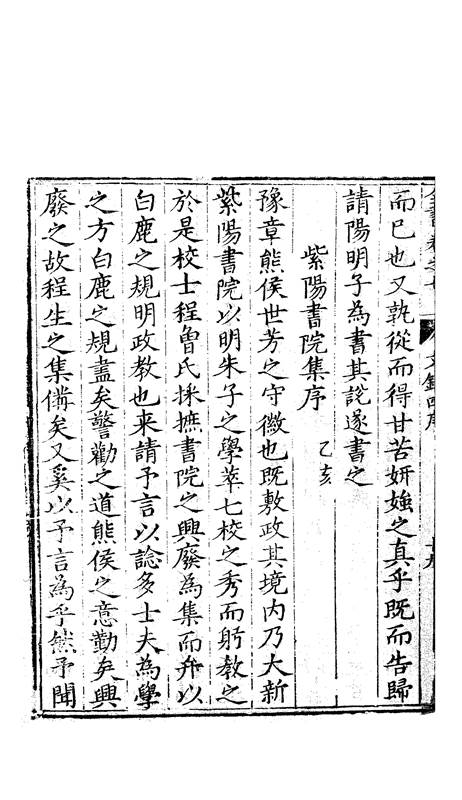 而巳也又孰從而得甘苦妍媸之真乎既而告歸
請陽明子為書其說遂書之
紫陽書院集序 乙亥
豫章熊侯世芳之守徽也既敷政其境内乃大新
紫陽書院以明朱子之學萃七校之秀而躬教之
於是校士程曾氏採摭書院之興廢為集而弁以
白鹿之規明政教也来請予言以諗多士夫為學
之方白鹿之規盡矣警勸之道熊侯之意勤矣興
廢之故程生之集備矣又奚以予言為乎然予聞